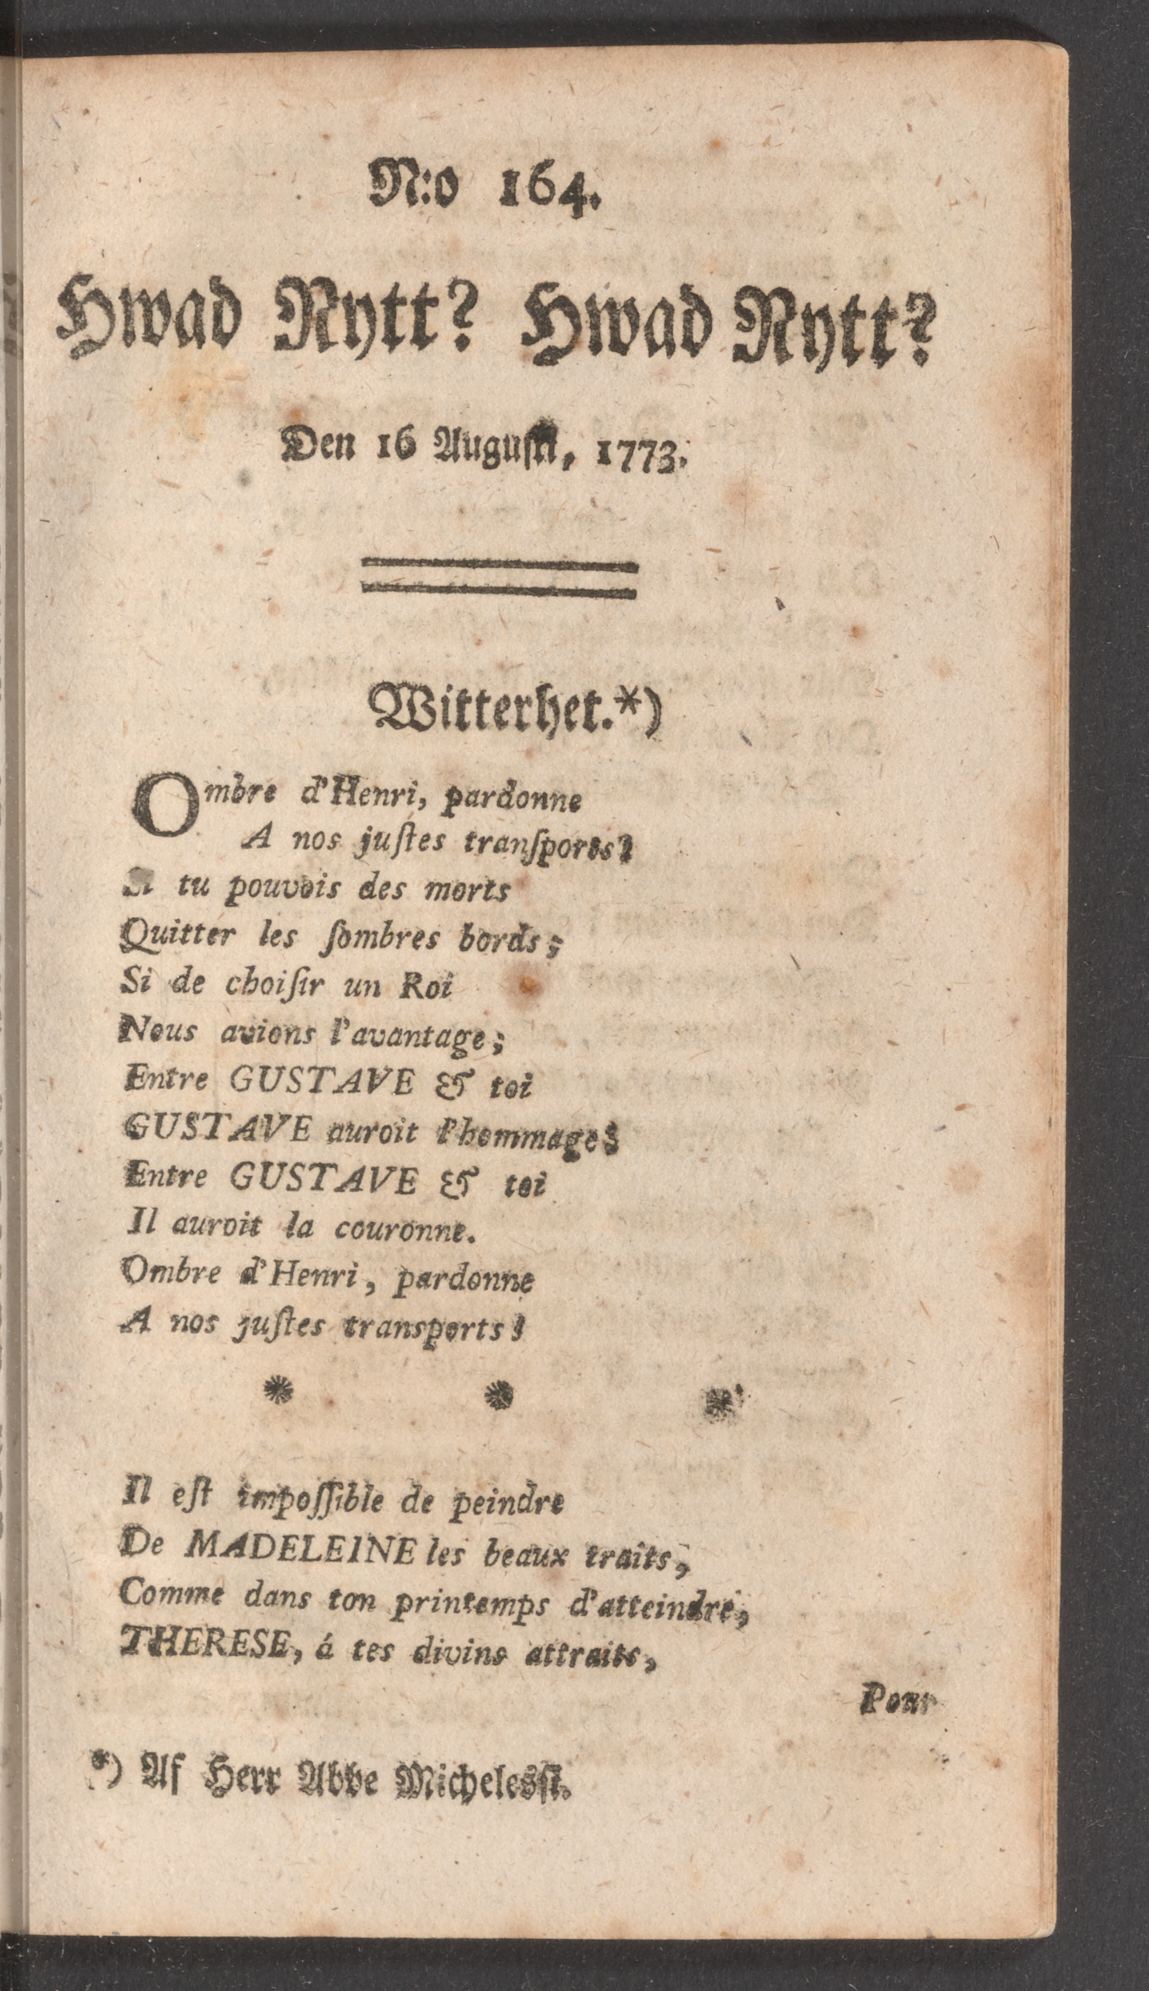 N:o 164.
Hwad Nytt? Hwad Nytt?
Den 16 Augusti, 1773.
Witterhet.*)
Ombre d'Henri, pardonne
A nos juſtes tranſports!
Si tu pouvois des morts
Quitter les ſombres bords;
Si de choiſir un Roi
Nous avions l'avantage;
Entre GUSTAVE & toi
GUSTAVE auroit l'hommage;
Entre GUSTAVE & toi
Il auroit la couronne.
Ombre d'Henri, pardonne
A nos juſtes transports!
* * *
Il eſt impoſſible de peindre
De MADELEINE les beaux traits,
Comme dans ton printemps d'atteindre,
THERESE, á tes divins attraits,
Pour
*) Af Herr Abbe Michelesſi.